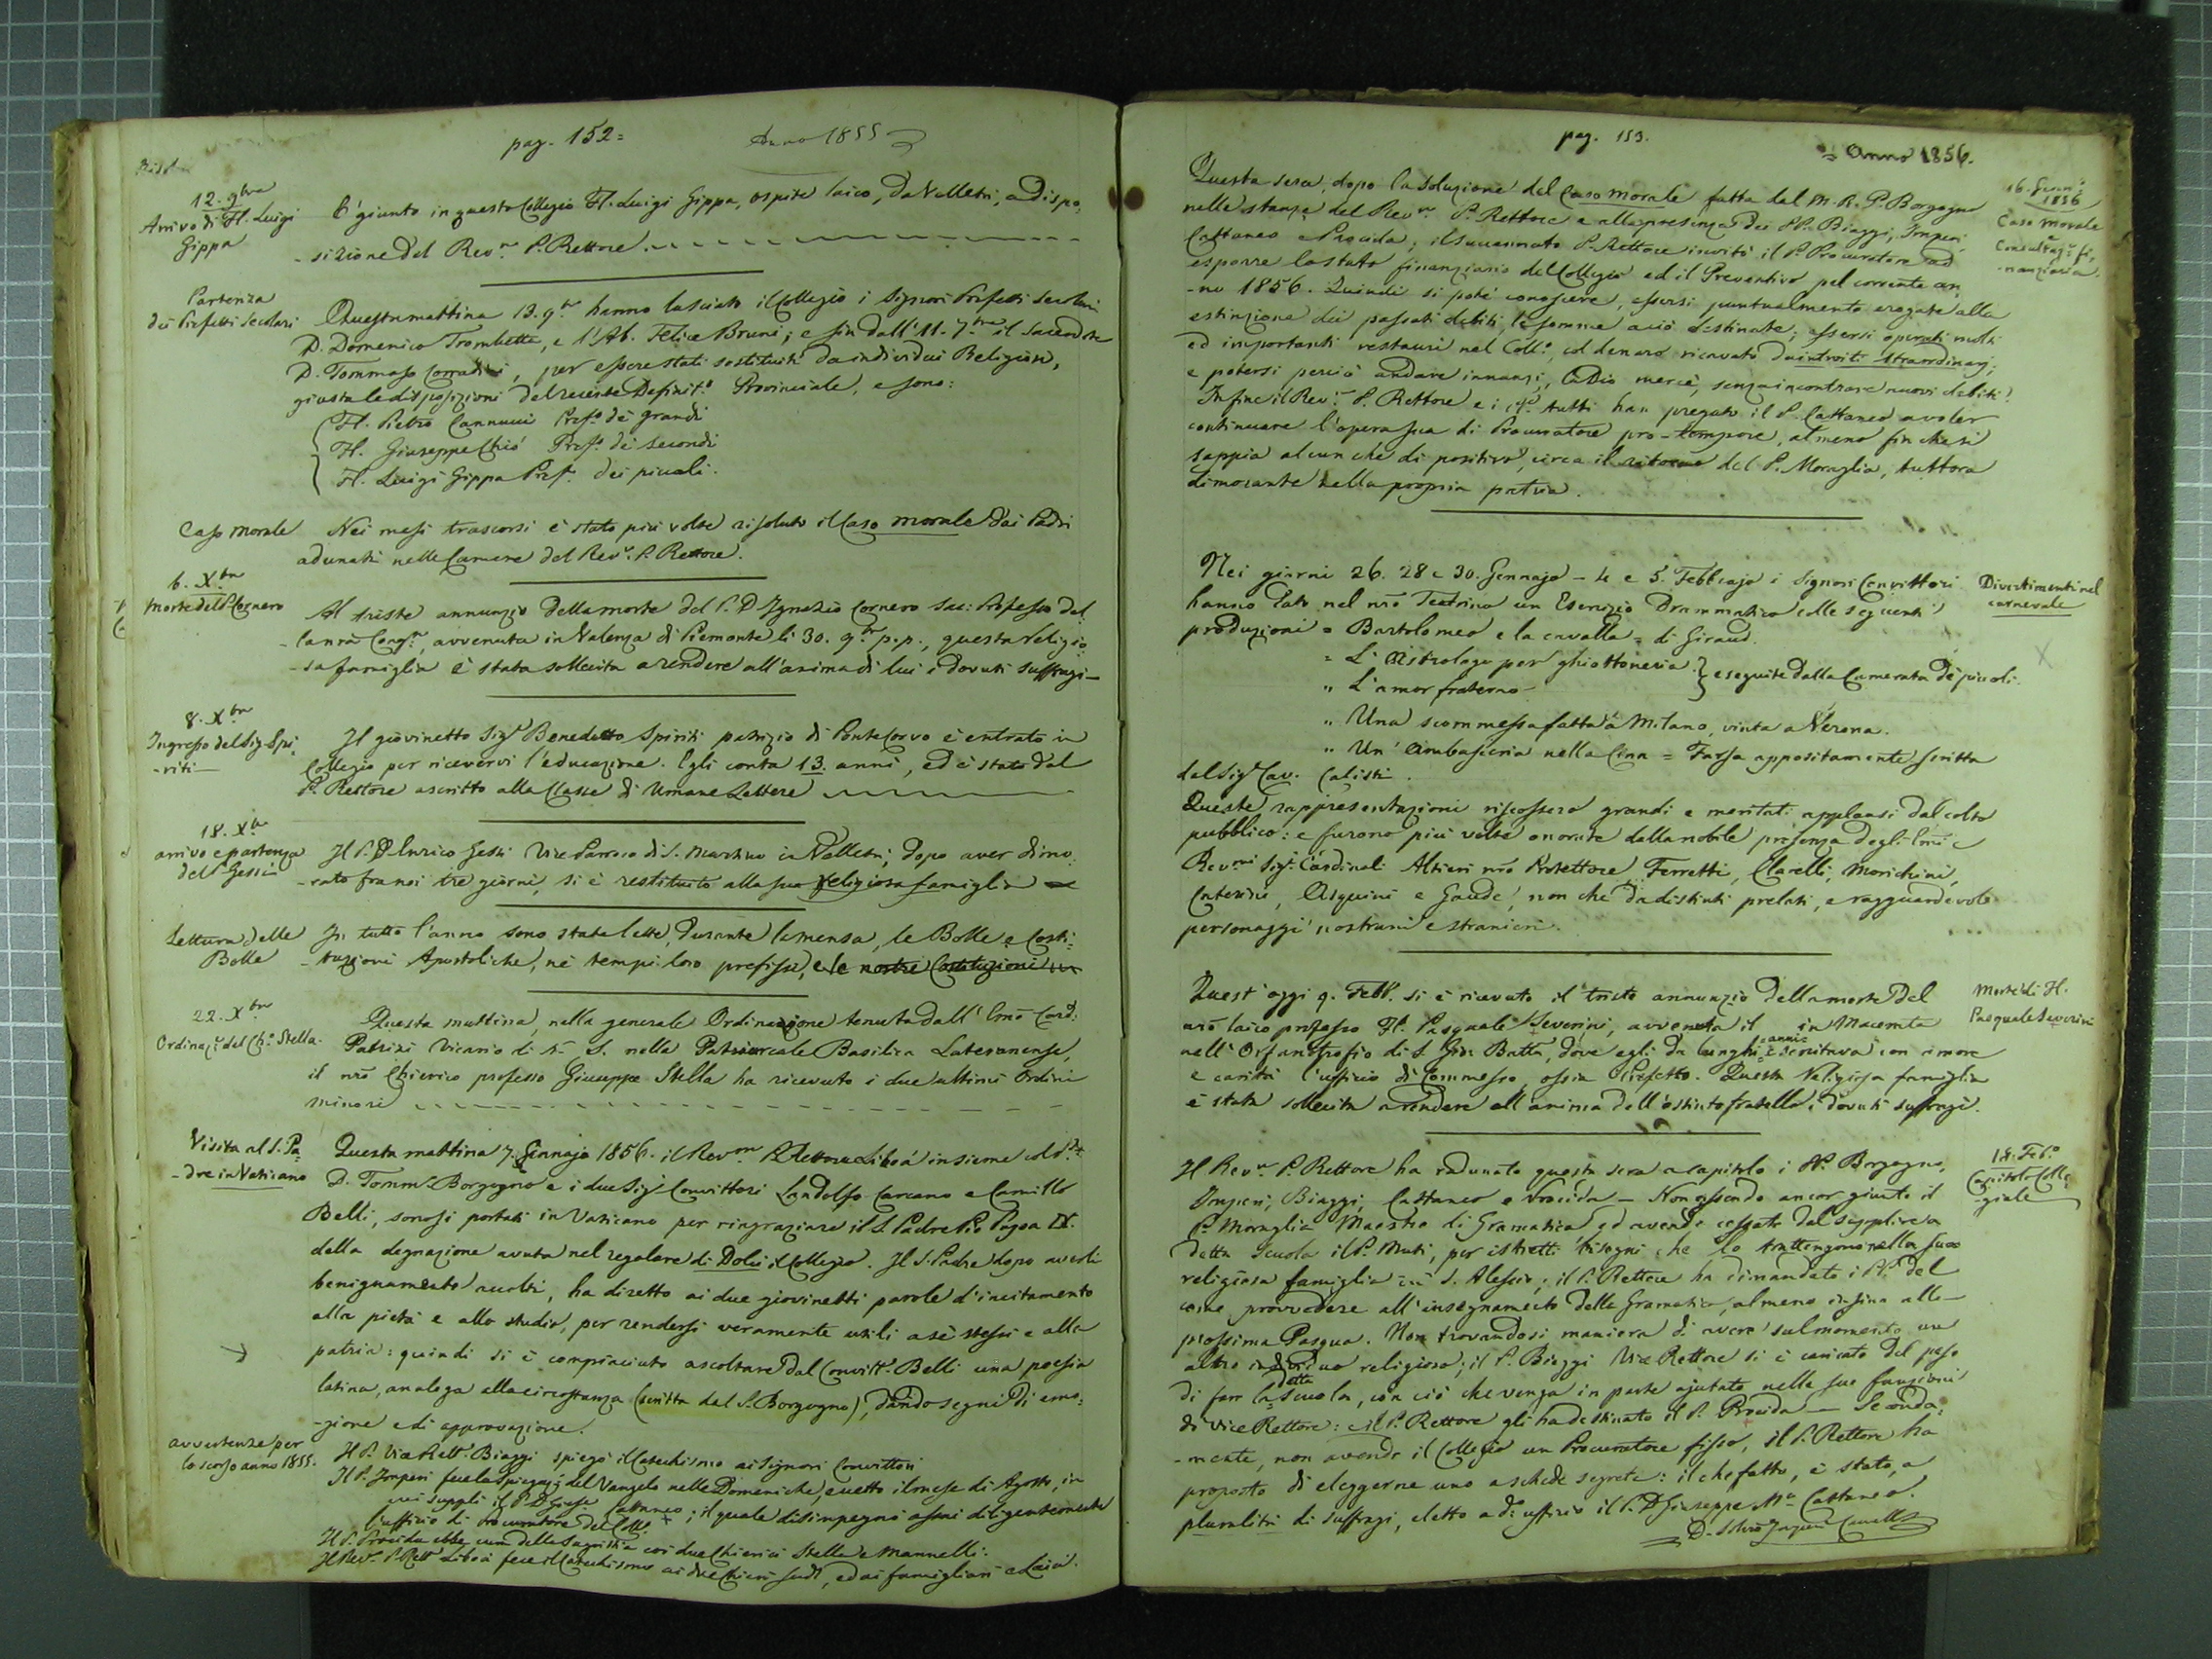 pag. 152=
Anno 1855
12. 9bre
Arrivo di Fl. Luigi
Gippa
E' giunto in questo Collegio Fl. Luigi Gippa, ospite laico, da Velletri, a dispo,
-sizione del Revmo P. Rettore.
Partenza
dei Prefetti Secolari
Questa mattina 13. 9bre hanno lasciato il Collegio i Signori Prefetti secolari
D. Domenico Trombetta, e l'Ab. Felice Bruni; e fin dall'11. 7bre il Sacerdote
D. Tommaso Corradini, per essere stati sostituiti da individui Religiosi,
giusta le disposizioni del recente Definito Provinciale, e sono:
Fl. Pietro Cannucci Prefo de' grandi
Fl. Giuseppe Chiò Prefo de' secondi
Fl. Luigi Gippa Pref. dei piccoli.
Caso morale
Nei mesi trascorsi è stato più volte risoluto il Caso morale dai Padri
adunati nelle Camere del Rev. P. Rettore.
6. Xbre
Morte del P. Cornero
Al triste annunzio della morte del P. D. Ignazio Cornero Sac: Professo del,
-la nra Congne, avvenuta in Valenza di Piemonte li 30. 9bre p.p., questa religio,
-sa famiglia è stata sollecita a rendere all'anima di lui i dovuti suffragi-
8. Xbre
Ingresso del Sig. Spi,
-riti-
Il giovinetto Sigr Benedetto Spiriti patrizio di Pontecorvo è entrato in
Collegio per ricevervi l'educazione. Egli conta 13. anni, ed è stato dal
P. Rettore ascritto alla Classe di Umane Lettere
18. Xbre
arrivo e partenza
del P. Gessi
Il P. D. Enrico Gessi Vice Parroco di S. Martino in Velletri, dopo aver dimo,
-rato fra noi tre giorni, si è restituito alla sua religiosa famiglia
Lettura delle
Bolle
In tutto l'anno sono state lette, durante la mensa, le Bolle e Costi=
-tuzioni Apostoliche, ne' tempi loro prefissi, e le nostre Costituzioni
22. Xbre
Ordinaz. del Cho Stella.
Questa mattina, nella generale Ordinazione tenuta dall'Emo Card:
Patrizi Vicario di N. S. nella Patriarcale Basilica Lateranense,
il nro Chierico professo Giuseppe Stella ha ricevuto i due ultimi Ordini
minori
Visita al S. Pa=
-dre in Vaticano
Questa mattina 7. Gennajo 1856. il Revmo P. Rettore Libois insieme col P.
D. Tommo Borgogno e i due Sigi Convittori Landolfo Carcano e Camillo
Belli, sonosi portati in Vaticano per ringraziare il S. Padre Pio Papa IX.
della degnazione avuta nel regalare di Dolci il Collegio. Il S. Padre dopo averli
benignamente accolti, ha diretto ai due giovinetti parole d'incitamento
alla pietà e allo studio, per rendersi veramente utili a sè stessi e alla
patria: quindi si è compiaciuto ascoltare dal Convitt. Belli una poesia
latina, analoga alla circostanza (scritta dal P. Borgogno), dando segni di emo=
-zione e di approvazione.
avvertenze per
lo scorso anno 1855.
Il P. Vice Rett. Biaggi spiegò il Catechismo ai Signori Convittori
Il P. Imperi fece la Spiegaz. del Vangelo nelle Domeniche, eccetto il mese di Agosto, in
cui supplì il P. D. Giuse Cattaneo; il quale disimpegnò assai diligentemente
l'uffizio di Procuratore del Coll.
Il P. Procida ebbe cura della Sagristia coi due Chierici Stella e Mannelli.
Il Rev. P. Rett. Libois fece il Catechismo ai due Chierici sudi, ed ai famigliari e Laici.
pag. 153.
Anno 1856.
16. Genn.
1856
Caso Morale
e
Consultaz. fi,
-nanziaria.
Questa sera, dopo la soluzione del Caso morale fatta dal M. R. P. Borgogno
nelle stanze del Revmo P. Rettore e alla presenza dei PP. Biaggi, Imperi
Cattaneo e Procida; il suenunciato P. Rettore invitò il P. Procuratore ad
esporre lo stato finanziario del Collegio ed il Preventivo pel corrente an,
-no 1856. Quindi si potè conoscere, essersi puntualmente erogate alla
estinzione dei passati debiti, le somme a ciò destinate; essersi operati molti
ed importanti restauri nel Coll., col denaro ricavato da introiti straordinarj;
e potersi perciò andare innanzi, la Dio mercè, senza incontrare nuovi debiti.
Infine il Rev. P. Rettore e i PP. tutti han pregato il P. Cattaneo a voler
continuare l'opera sua di Procuratore pro-tempore, almeno fin che si
sappia alcun chè di positivo, circa il ritorno del P. Moraglia, tuttora
dimorante nella propria patria.
Divertimenti nel
carnevale
Nei giorni 26. 28 e 30. Gennajo - 4 e 5. Febbrajo i Signori Convittori
hanno dato nel nro Teatrino un Esercizio Drammatico colle seguenti
produzioni = Bartolomeo e la cavalla = di Giraud.
= L'Astrologo per ghiottoneria.
" L'amor fraterno-
eseguite dalla Camerata de' piccoli.
" Una scommessa fatta a Milano, vinta a Verona.
" Un'Ambasceria nella Cina = Farsa appositamente scritta
dal Sigr Cav. Calisti.
Queste rappresentazioni riscossero grandi e meritati applausi dal colto
pubblico: e furono più volte onorate della nobile presenza degli Emi e
Revmi Sigi Cardinali Altieri nro Protettore, Ferretti, Clarelli, Morichini,
Caterini, Asquini e Gaude, non che da distinti prelati, e ragguardevoli
personaggi nostrani e stranieri.
Morte di Fl.
Pasquale Severini
Quest'oggi 9. Febb. si è ricevuto il tristo annunzio della morte del
nro laico professo Fl. Pasquale Severini, avvenuta il in Macerata
nell'Orfanotrofio di S. Gio: Batta, dove egli da lunghi anni esercitava con amore
e carità l'ufficio di Commesso, ossia Prefetto. Questa Religiosa famiglia
è stata sollecita a rendere all'anima dell'estinto fratello i dovuti suffragi.
18. Febo
Capitolo Colle,
-giale
Il Revmo P. Rettore ha radunato questa sera a capitolo i PP. Borgogno,
Imperi, Biaggi, Cattaneo e Procida - Non essendo ancor giunto il
P. Moraglia Maestro di Gramatica ed avendo cessato dal supplire a
detta Scuola il P. Muti, per istretti bisogni che lo trattengono nella sua
religiosa famiglia in S. Alessio; il P. Rettore ha dimandato i PP. del
come provvedere all'insegnamento della Gramatica, almeno infino alla-
prossima Pasqua. Non trovandosi maniera di avere sul momento un
altro individuo religioso; il P. Biaggi Vice Rettore si è caricato del peso
di far la detta Scuola, con ciò che venga in parte ajutato nelle sue funzioni
di Vice Rettore: e il P. Rettore gli ha destinato il P. Procida - Seconda,
-mente, non avendo il Collegio un Procuratore fisso, il P. Rettore ha
proposto di eleggerne uno a schede segrete: il che fatto, è stato, a
pluralità di suffragi, eletto a dì uffizio il P. D. Giuseppe Ma Cattaneo.